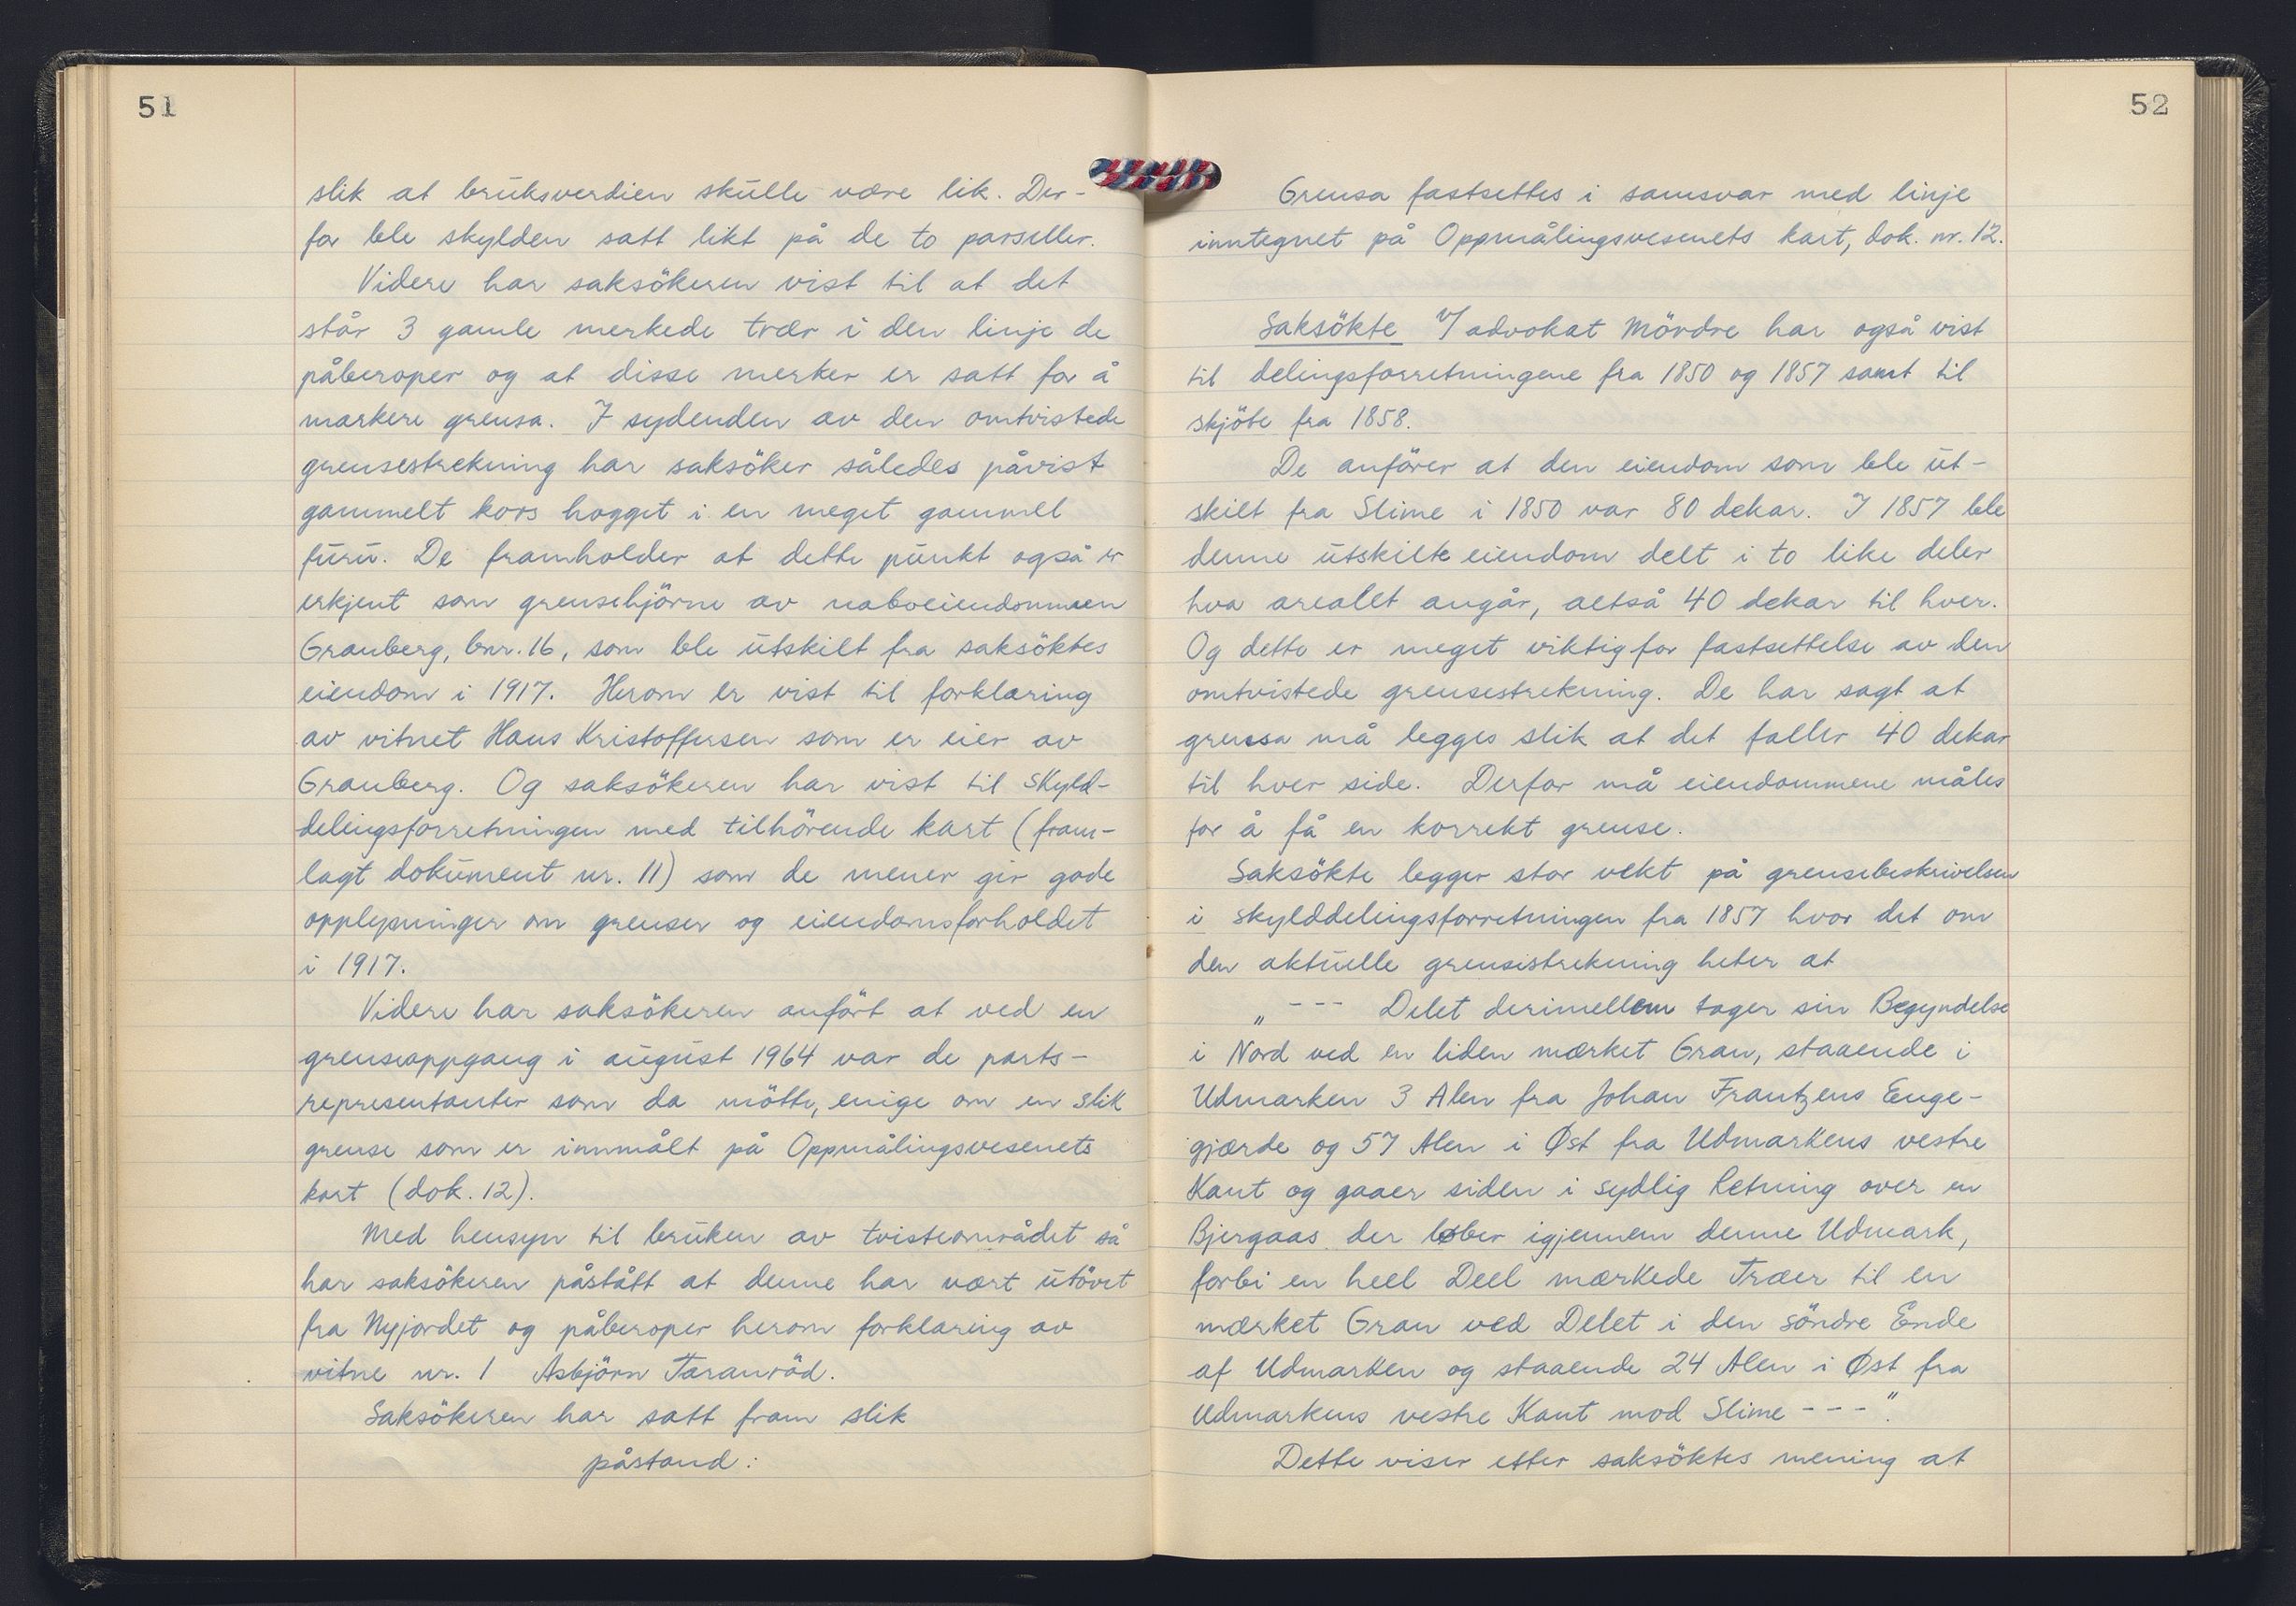 51
slik at bruksverdien skulle være lik. Der-
for ble skylden satt likt på de to parseller.
Videre har saksökeren vist til at det
står 3 gamle merkede trær i den linje de
påberoper og at disse merker er satt for å
markere grensa. I sydenden av den omtvistede
grensestrekning har saksöker således påvist
gammelt kors hogget i en meget gammel
furu. De framholder at dette punkt også er
erkjent som grensehjörne av naboeiendommen
Granberg, bnr. 16, som ble utskilt fra saksöktes
eiendom i 1917. Herom er vist til forklaring
av vitnet Hans Kristoffersen som er eier av
Granberg. Og saksökeren har vist til skyld-
delingsforretningen med tilhörende kart (fram-
lagt dokument nr. 11) som de mener gir gode
opplysninger om grenser og eiendomsforholdet
i 1917.
Videre har saksökeren anfört at ved en
grenseoppgang i august 1964 var de parts-
representanter som da mötte, enige om en slik
grense som er innmålt på Oppmålingsvesenets
kart (dok. 12).
Med hensyn til bruken av tvisteområdet så
har saksökeren påstått at denne har vært utövet
fra Nyjordet og påberoper herom forklaring av
vitne nr. 1 Asbjörn Taranröd.
Saksökeren har satt fram slik
påstand:
52
Grensa fastsettes i samsvar med linje
inntegnet på Oppmålingsvesenets kart, dok. nr. 12.
Saksökte v/ advokat Mövdre har også vist
til delingsforretningene fra 1850 og 1857 samt til
skjöte fra 1858.
De anförer at den eiendom som ble ut-
skilt fra Slime i 1850 var 80 dekar. I 1857 ble
denne utskilte eiendom delt i to like deler
hva arealet angår, altså 40 dekar til hver.
Og dette er meget viktig for fastsettelse av den
omtvistede grensestrekning. De har sagt at
grensa må legges slik at det faller 40 dekar
til hver side. Derfor må eiendommene måles
for å få en korrekt grense.
Saksökte legger stor vekt på grensebeskrivelsen
i skylddelingsforretningen fra 1857 hvor det om
den aktuelle grensestrekning heter at
„ --- Delet derimellem tager sin Begyndelse
i Nord ved en liden mærket Gran, staaende i
Udmarken 3 Alen fra Johan Frantzens Enge-
gjærde og 57 Alen i Øst fra Udmarkens vestre
Kant og gaaer siden i sydlig Retning over en
Bjergaas der løber igjennem denne Udmark,
forbi en heel Deel mærkede Træer til en
mærket Gran ved Delet i den söndre Ende
af Udmarken og staaende 24 Alen i Øst fra
Udmarkens vestre Kant mod Slime ---".
Dette viser etter saksöktes mening at